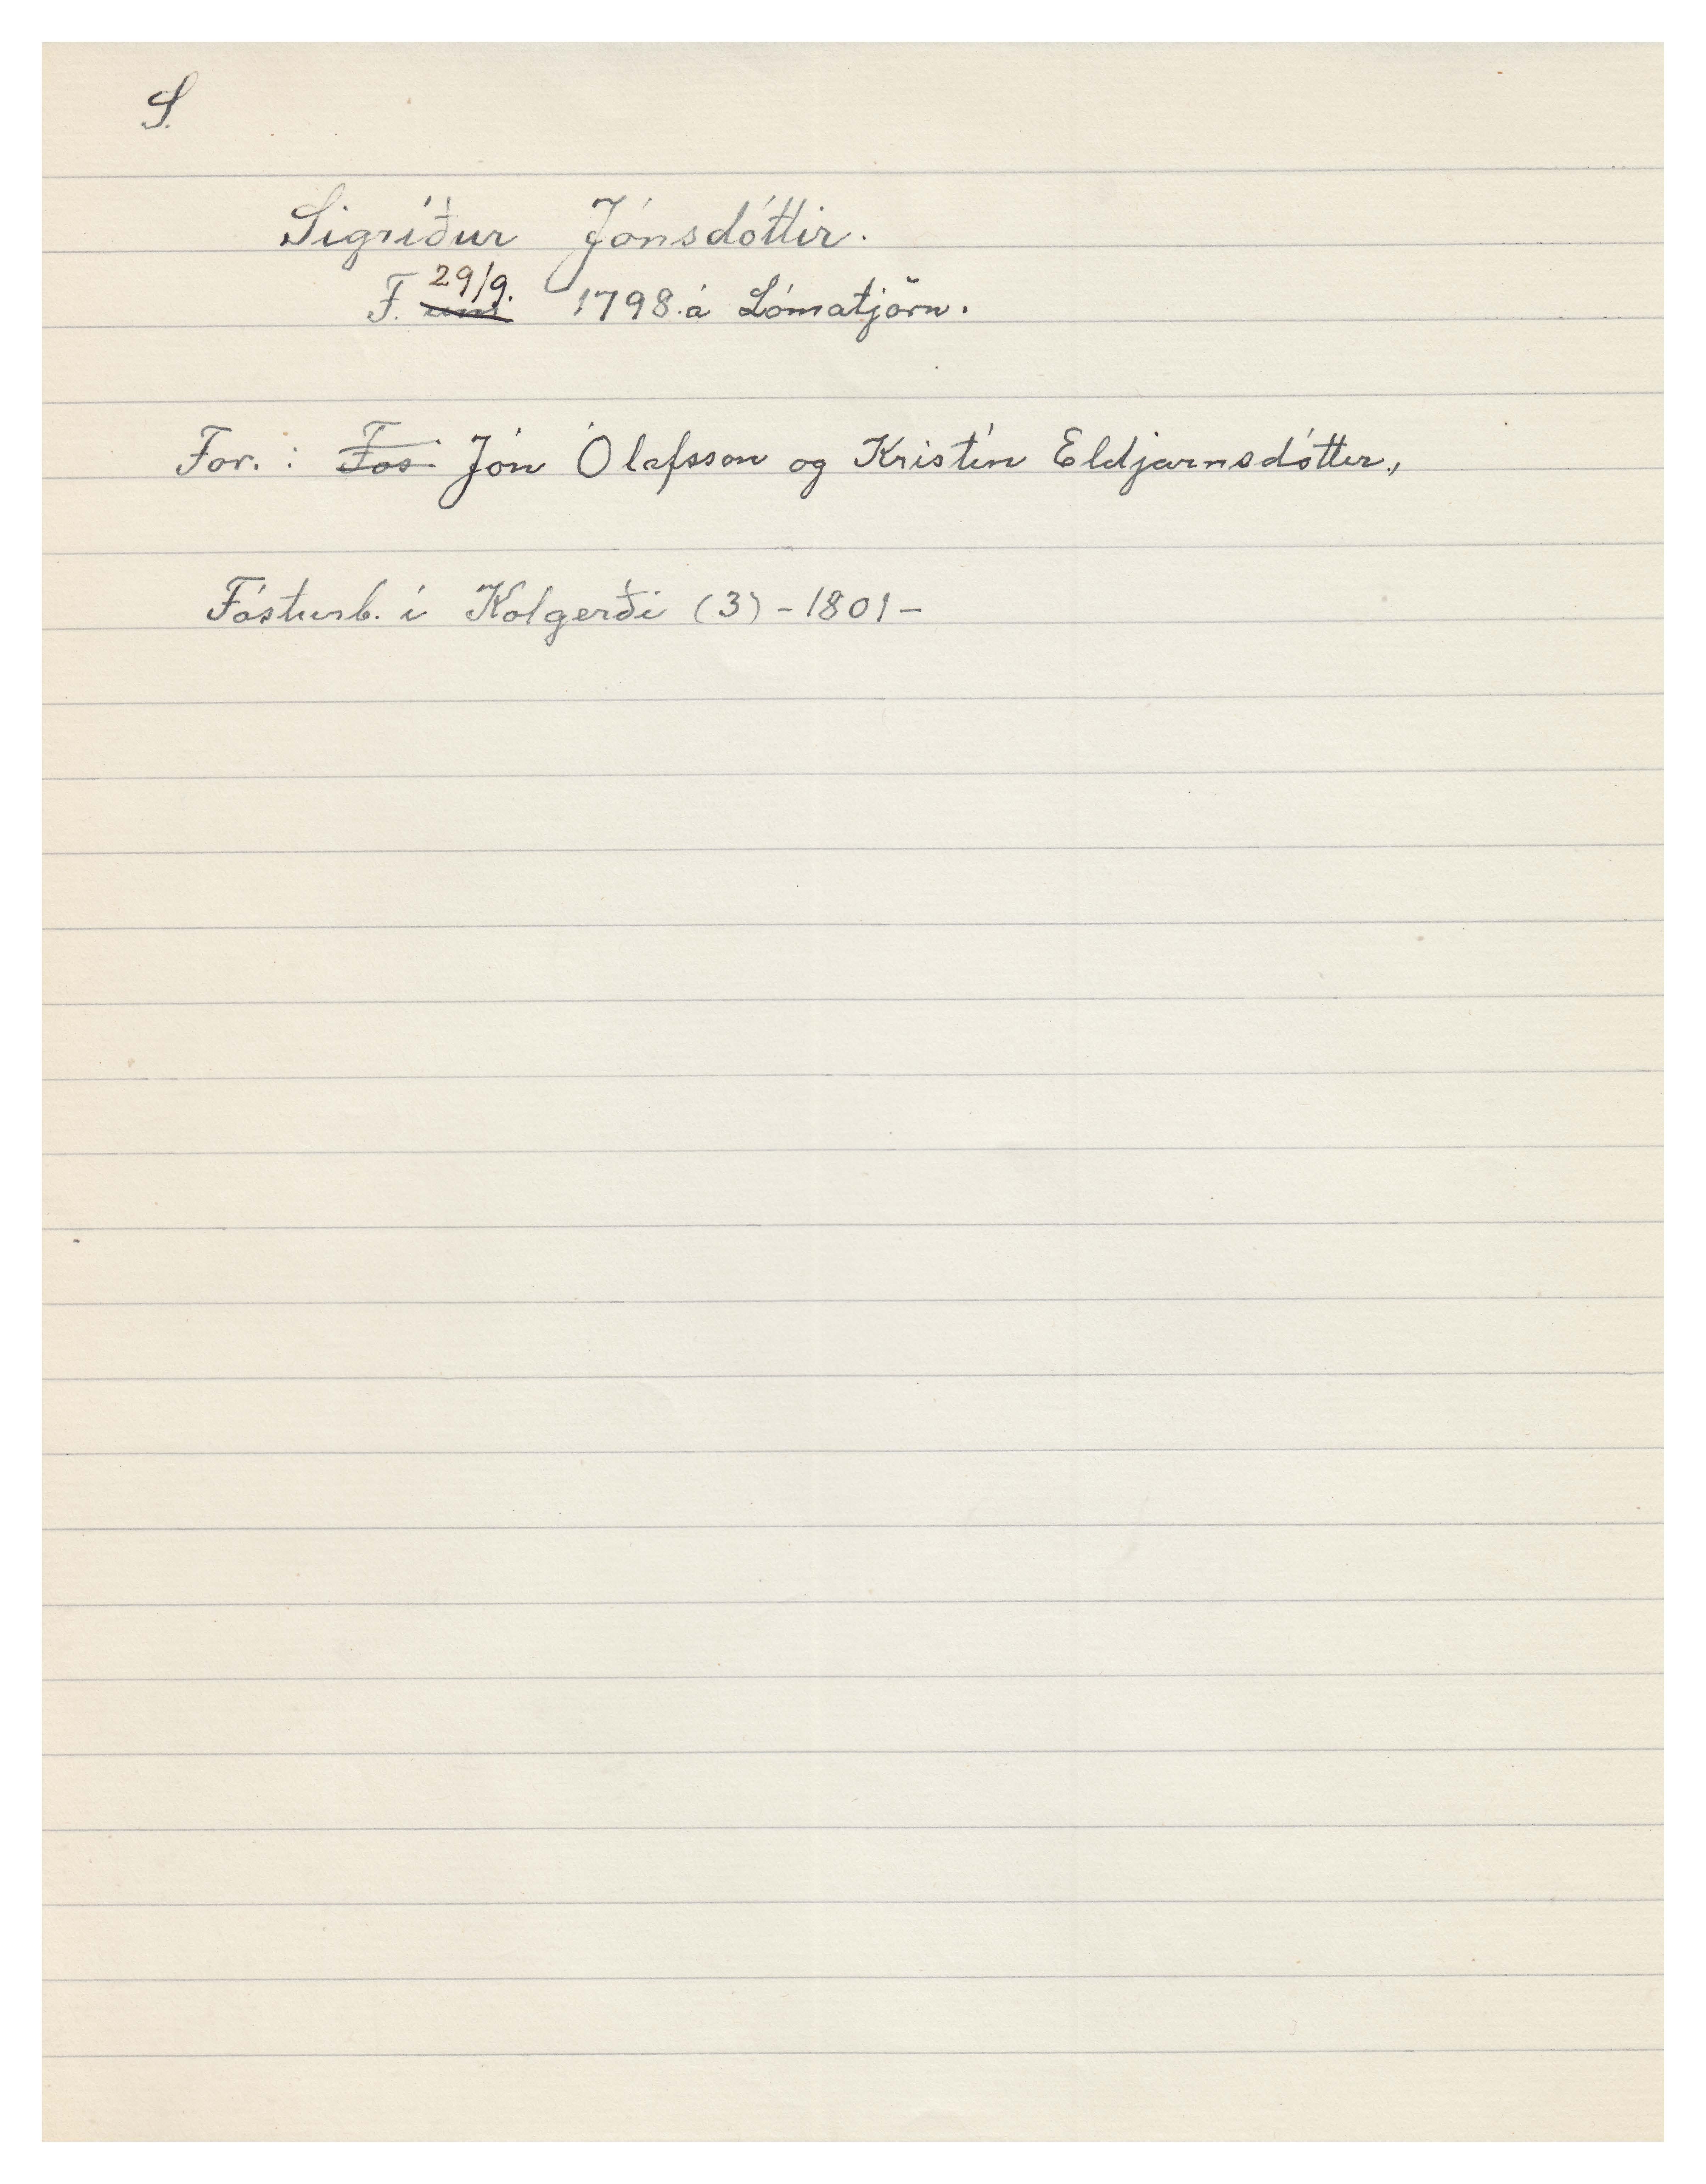 S.
Sigríður Jónsdóttir.
F. 29/9. 1798 á Lómatjörn.
For.: Fos Jón Ólafsson og Kristín Eldjarnsdóttir,
Fósturb. í Kolgerði (3) - 1801 -